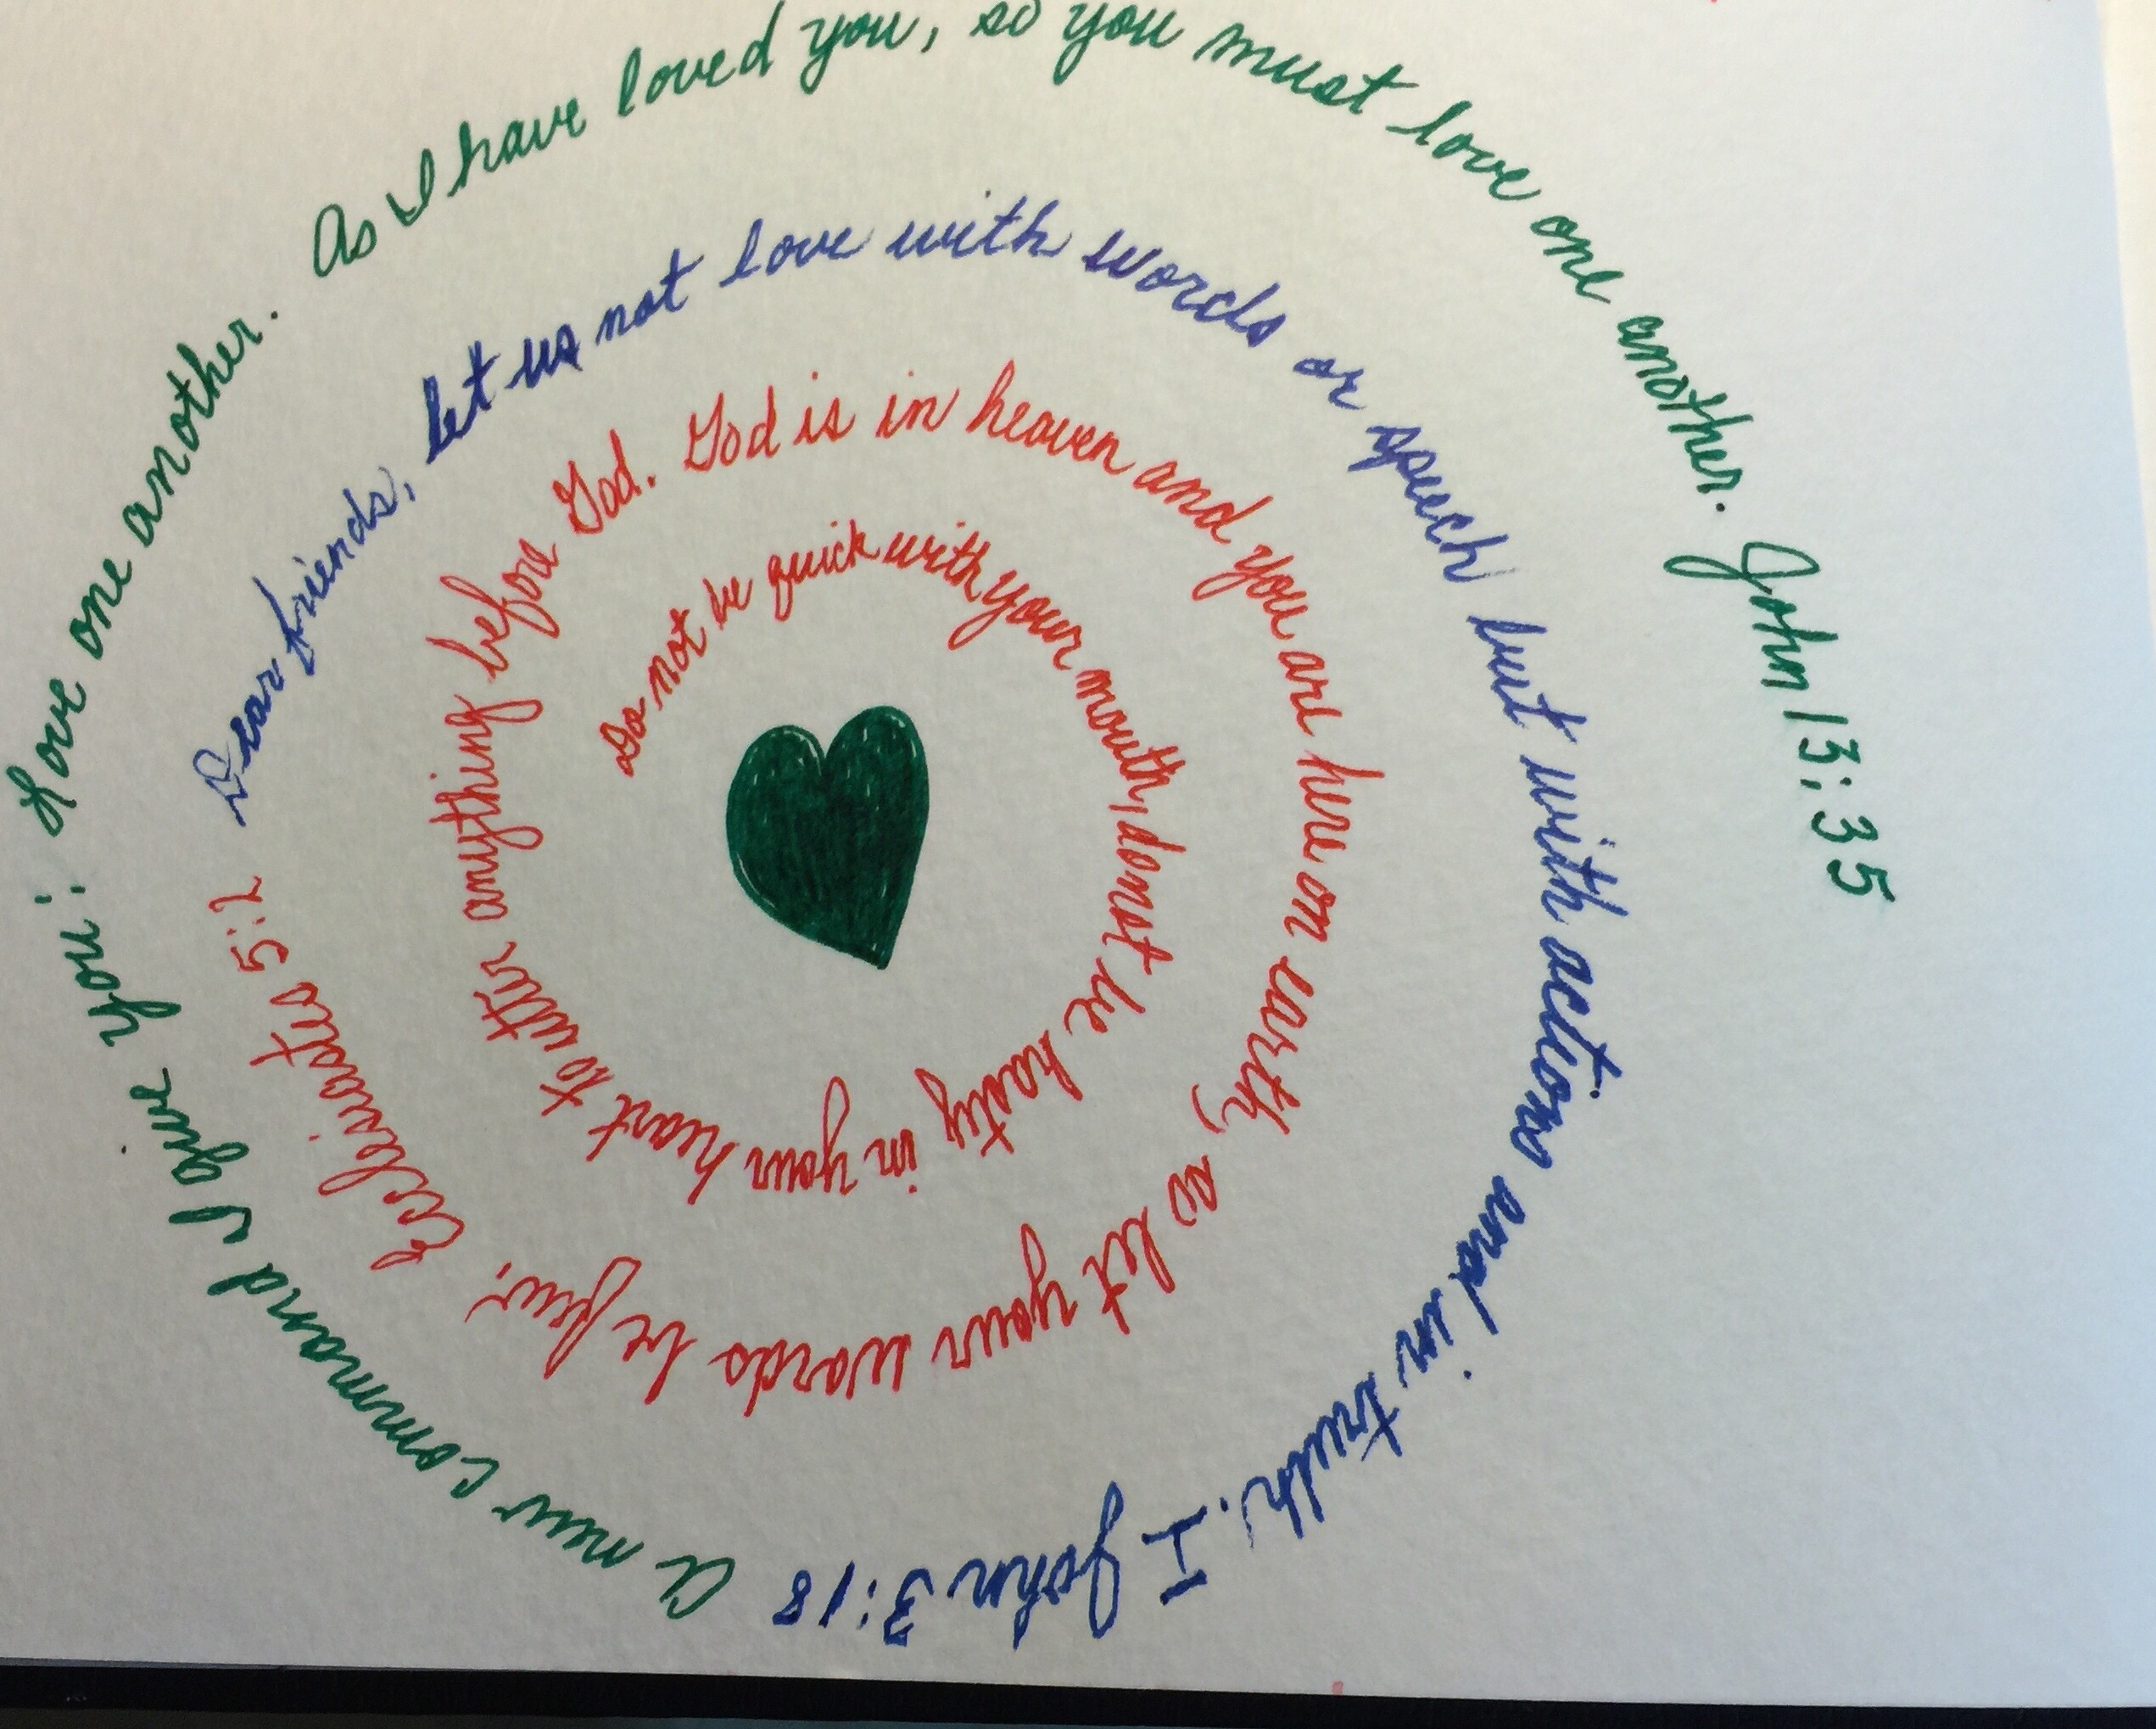 Do not be quick with your mouth, do not be hasty in your heart to utter anything before God. God is in heaven and you are here on earth, so let your words be few. Ecclesiastes 5:2
Dear friends, let us not love with words or speech but with actions and in truth. I John 3:18
A new command I give you: Love one another. As I have loved you, so you must love one another. John 13:35